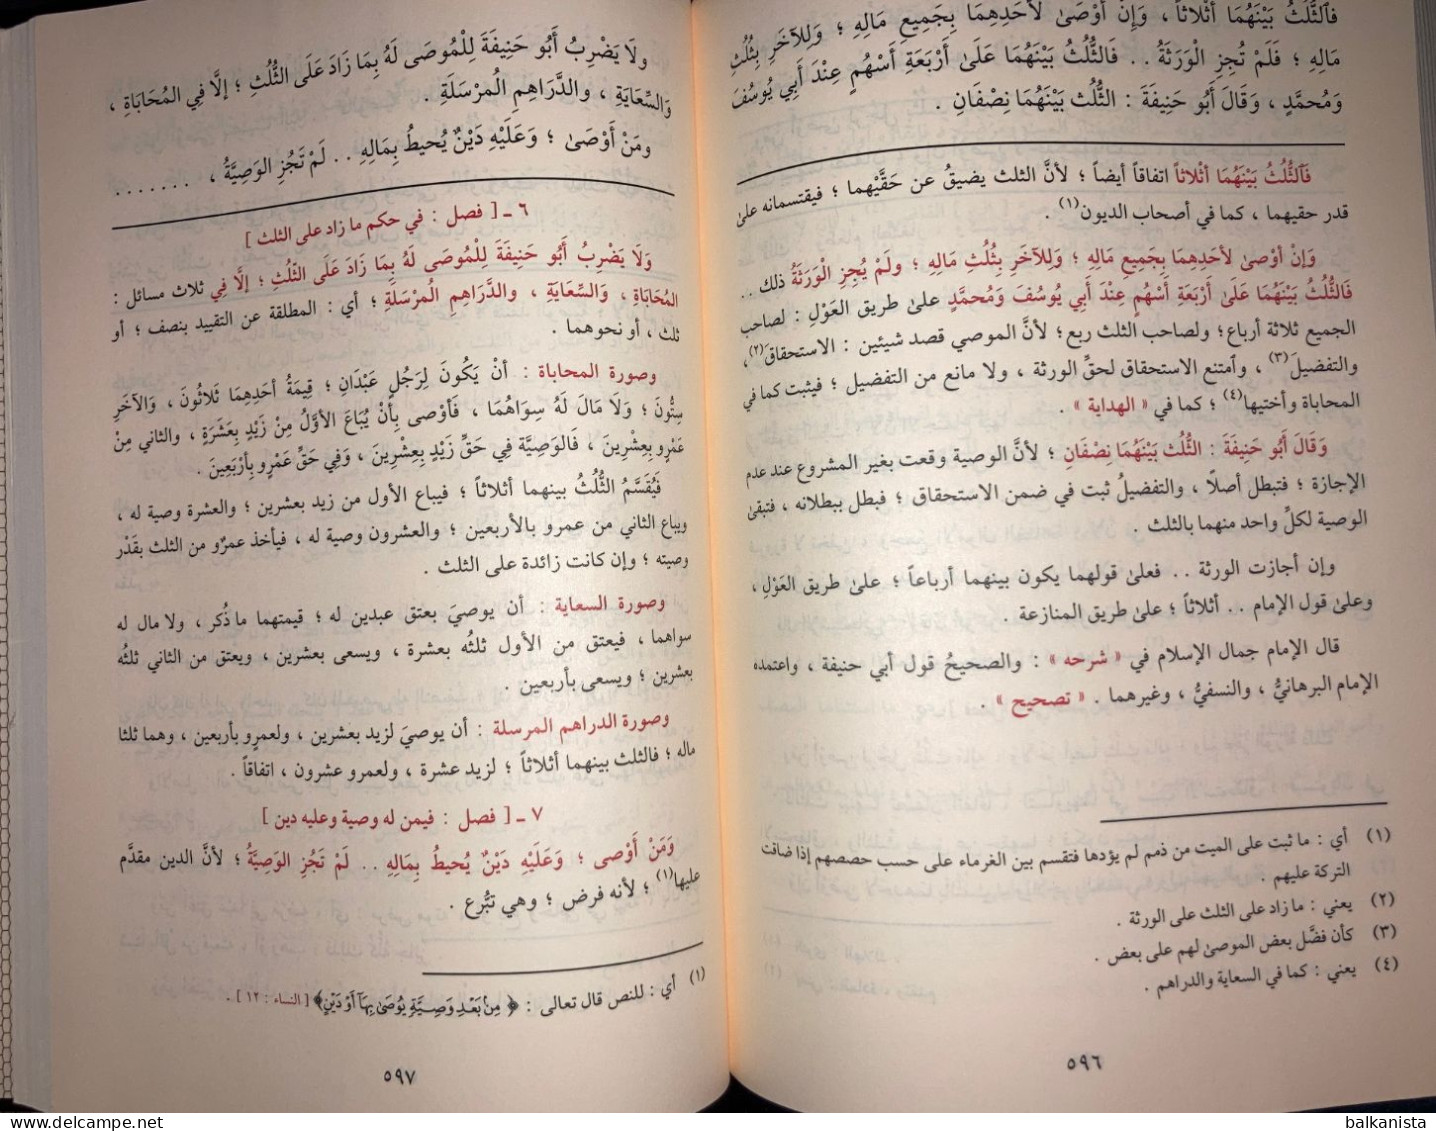 فَٱلثُّلُثُ بَيْنَهُمَا أَثْلَاثاً ، وَإِنْ أَوْصَىٰ لأَحَدِهِمَا بِجَمِيعِ مَالِهِ ؛ وَلِلآخَرِ بِثُلُثِ
مَالِهِ ؛ فَلَمْ تُجِزِ الْوَرَثَةُ . . فَالثُّلُثُ بَيْنَهُمَا عَلَىٰ أَرْبَعَةِ أَسْهُمٍ عِنْدَ أَبِي يُوسُفَ
وَمُحمَّدٍ ، وَقَالَ أَبُو حَنِيفَةَ : الثُّلُث بَيْنَهُمَا نِصْفَانِ .
فَٱلثُّلُثُ بَيْنَهُمَا أَثْلَاثاً اتفاقاً أيضاً ؛ لأنَّ الثلث يضيقُ عن حَقَّيْهما ؛ فيقتسمانه علىٰ
قدر حقيهما ، كما في أصحاب الديون(١) .
وَإِنْ أَوْصَىٰ لأَحَدِهِمَا بِجَمِيعِ مَالِهِ ؛ وَلِلآخَرِ بِثُلُثِ مَالِهِ ؛ ولَمْ يُجِزِ الْوَرَثَةُ ذلك . .
فَالثُّلُثُ بَيْنَهُمَا عَلَىٰ أَرْبَعَةِ أَسْهُمٍ عِنْدَ أَبِي يُوسُفَ وَمُحمَّدٍ علىٰ طريق العَوْلِ : لصاحب
الجميع ثلاثة أرباع؛ ولصاحب الثلث ربع؛ لأنَّ الموصي قصد شيئين : الاستحقاقَ(٢)،
والتفضيلَ(٣) ، وٱمتنع الاستحقاق لحقِّ الورثة ، ولا مانع من التفضيل ؛ فيثبت كما في
المحاباة وأختيها(٤) ؛ كما في « الهداية » .
وَقَالَ أَبُو حَنِيفَةَ : الثُّلُث بَيْنَهُمَا نِصْفَانِ ؛ لأنَّ الوصية وقعت بغير المشروع عند عدم
الإجازة ؛ فتبطل أصلًا ، والتفضيلُ ثبت في ضمن الاستحقاق ؛ فبطل ببطلانه ، فتبقىٰ
الوصية لكلِّ واحد منهما بالثلث .
وإن أجازت الورثة . . فعلىٰ قولهما يكون بينهما أرباعاً ؛ علىٰ طريق العَوْلِ ،
وعلىٰ قول الإمام . . أثلاثاً ؛ علىٰ طريق المنازعة .
قال الإمام جمال الإسلام في « شرحه » : والصحيحُ قول أبي حنيفة ، واعتمده
الإمام البرهانيُّ ، والنسفيُّ ، وغيرهما . « تصحيح » .
(١) أي : ما ثبت على الميت من ذمم لم يؤدها فتقسم بين الغرماء على حسب حصصهم إذا ضاقت
التركة عليهم .
(٢) يعني : ما زاد على الثلث على الورثة .
(٣) كأن فضَّل بعض الموصىٰ لهم على بعض .
(٤) يعني : كما في السعاية والدراهم .
٥٩٦
ولَا يَضْرِبُ أَبُو حَنِيفَةَ لِلْمُوصَى لَهُ بِمَا زَادَ عَلَى الثُّلُثِ ؛ إلَّا فِي المُحَابَاةِ ،
وَالسِّعَايَةِ ، والدَّرَاهِمِ الْمرْسَلَةِ .
ومَنْ أَوْصَىٰ ؛ وَعَلَيْهِ دَيْنٌ يُحيطُ بِمَالِهِ . . لَمْ تَجُزِ الوَصِيَّةُ ، . . . . . . .
٦ ـ [ فصل : في حكم ما زاد على الثلث ]
وَلَا يَضْرِبُ أَبُو حَنِيفَةَ لِلْمُوصَى لَهُ بِمَا زَادَ عَلَى الثُّلُثِ ؛ إلَّا فِي ثلاث مسائل :
المُحَابَاةِ ، وَالسِّعَايَةِ ، والدَّرَاهِمِ الْمرْسَلَةِ ؛ أي : المطلقة عن التقييد بنصف ؛ أو
ثلث ، أو نحوهما .
وصورة المحاباة : أَنْ يَكُونَ لِرَجُلٍ عَبْدَانِ ؛ قِيمَةُ أحَدِهِمَا ثَلَاثُونَ ، وَالآخَرِ
سِتُّونَ ؛ وَلَا مَالَ لَهُ سِوَاهُمَا ، فَأَوْصَى بِأَنْ يُبَاعَ الأوَّلُ مِنْ زَيْدٍ بِعَشَرَةٍ ، والثاني مِنْ
عَمْرٍو بِعِشْرِينَ ، فَالوَصِيَّةُ فِي حَقِّ زَيْدٍ بِعِشْرِينَ ، وَفِي حَقِّ عَمْرٍو بِأَرْبَعِينَ .
فَيُقَسَّمُ الثُّلُثُ بينهما أثلاثاً ؛ فيباع الأول من زيد بعشرين ؛ والعشرة وصية له ،
ويباع الثاني من عمرو بالأربعين ؛ والعشرون وصية له ، فيأخذ عمرٌو من الثلث بقَدْر
وصيته ؛ وإن كانت زائدة على الثلث .
وصورة السعاية : أن يوصيَ بعتق عبدين له ؛ قيمتهما ما ذُكر ، ولا مال له
سواهما ، فيعتق من الأول ثلثُه بعشرة ، ويسعى بعشرين ، ويعتق من الثاني ثلثُه
بعشرين ؛ ويسعى بأربعين .
وصورة الدراهم المرسلة : أن يوصيَ لزيد بعشرين ، ولعمرٍو بأربعين ، وهما ثلثا
ماله ؛ فالثلث بينهما أثلاثاً ؛ لزيد عشرة ، ولعمرو عشرون ، اتفاقاً .
٧ ـ [ فصل : فيمن له وصية وعليه دين ]
وَمَنْ أَوْصى ؛ وَعَلَيْهِ دَيْنٌ يُحيطُ بِمَالِهِ . . لَمْ تَجُز الوَصِيَّةُ ؛ لأنَّ الدين مقدَّم
عليها(١) ؛ لأنه فرض ؛ وهي تبُّرع .
(١) أي : للنص قال تعالى : ﴿ مِنۢ بَعْدِ وَصِيَّةٍ يُوصَىٰ بِهَآ أَوْ دَيْنٍ﴾ [ النساء : ١٢ ] .
٥٩٧
balkanista